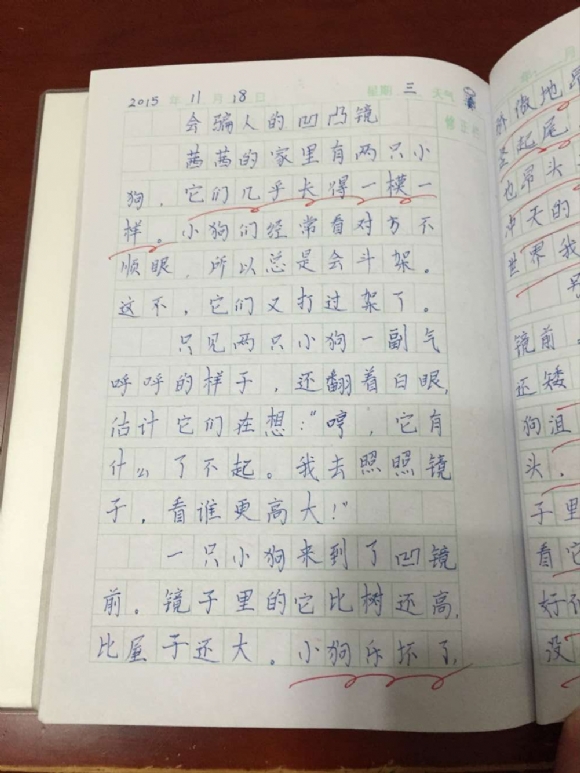 2015 年 11 月 18 日 星期 三 天气
会骗人的凹凸镜
茜茜的家里有两只小
狗，它们几乎长得一模一
样。小狗们经常看对方不
顺眼，所以总是会斗架。
这不，它们又打过架了。
只见两只小狗一副气
呼呼的样子，还翻着白眼，
估计它们在想：“哼，它有
什么了不起。我去照照镜
子，看谁更高大！”
一只小狗来到了凹镜
前。镜子里的它比树还高，
比屋子还大。小狗乐坏了，
地昂
竖起尾
也昂头
冲天的
世界我
镜前
还矮
狗沮
头，
子里
看它
好
没